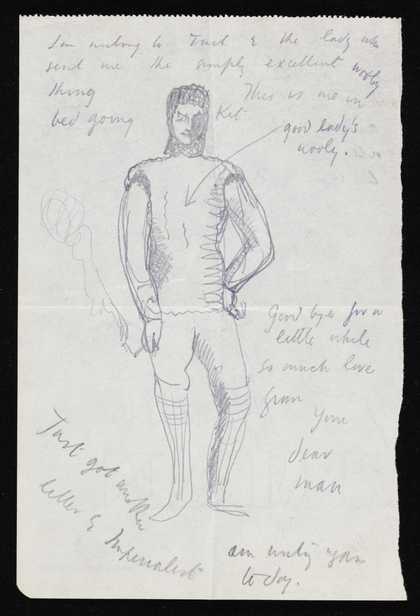 I am writing to Trust & the lady who
send me the simply excellent wooly
thing This is me in
bed going Kit
good lady's
wooly.
Good bye for a
little while
so much love
from
Your
dear
man
Just got another
letter & Imperialist
am writing you
today.